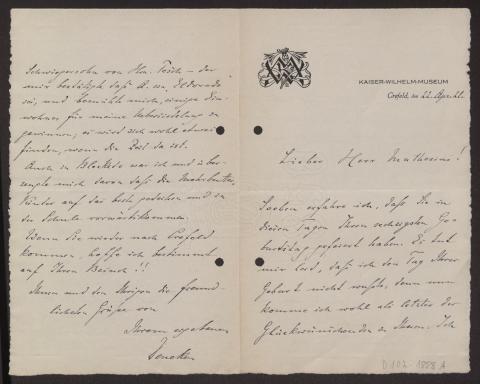 KAISER-WILHELM-MUSEUM
Crefeld, den 22. Apr. 21.
Lieber Herr Muthesius!
Soeben erfahre ich, daß Sie in
diesen Tagen Ihren sechzigsten Ge-
burtstag gefeiert haben. Es tut
mir leid, daß ich den Tag Ihrer
Geburt nicht wußte, denn nun
komme ich wohl als letzter der
Glückwünschenden zu Ihnen. Ich
Schwiegersohn von Hn. – der
mir bestätigt daß A. ein Eldorado
sei, und bemüht mich, einige Ein-
wohner für meine Uebersiedelung zu
gewinnen; es wird sich wohl etwas
finden, wenn die Zeit da ist.
Auch in Bleckede war ich und über-
zeugte mich davon daß die
Kinder auf das beste gedeihen und in
der Schule vorwärtskommen.
Wenn Sie wieder nach Crefeld
kommen, hoffe ich bestimmt
auf Ihren Besuch!!
Ihnen und den Ihrigen die freund-
lichsten Grüße von
Ihrem ergebenen
Deneken
D 102 - 1888 A